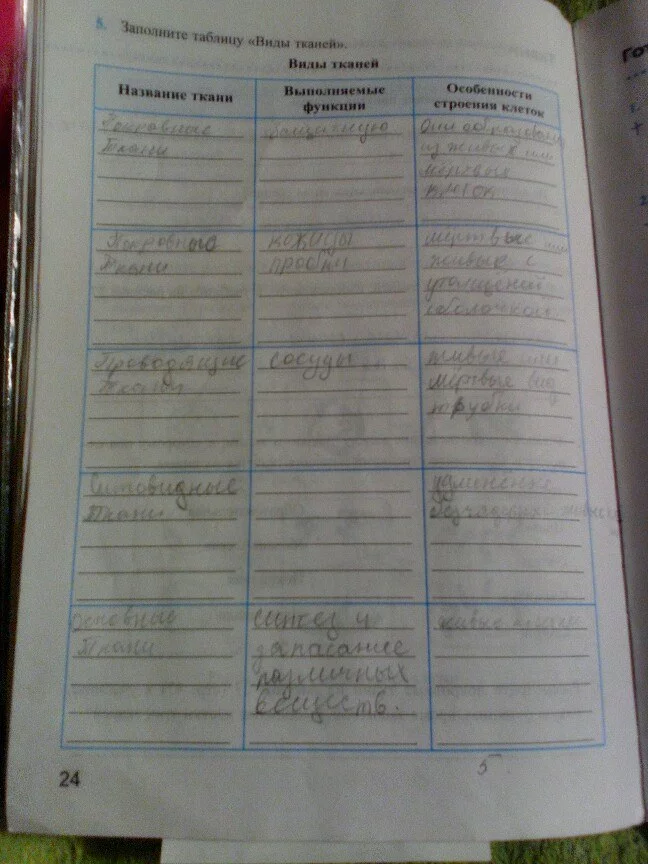 5. Заполните таблицу «Виды тканей».
Виды тканей
Название ткани
Выполняемые функции
Особенности строения клеток
Покровные
ткани
защитную
Они образованы
из живых или
мёртвых
клеток
Покровные
ткани
кожицы
пробки
мертвые или
живые с
утолщенной
оболочкой
Проводящие
ткани
сосуды
живые или
мёртвые вид
трубки
Ситовидные
ткани
удлиненные
безъядерные
Основные
ткани
синтез и
запасание
различных
веществ.
живые клетки
24
5